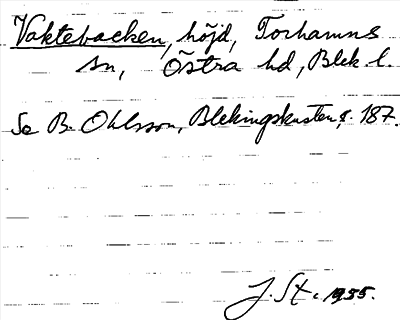 Vaktebacken, höjd, Torhamns
sn, Östra hd, Blek l.
Se B. Ohlsson, Blekingskusten, s. 187.
J. St. 1955.